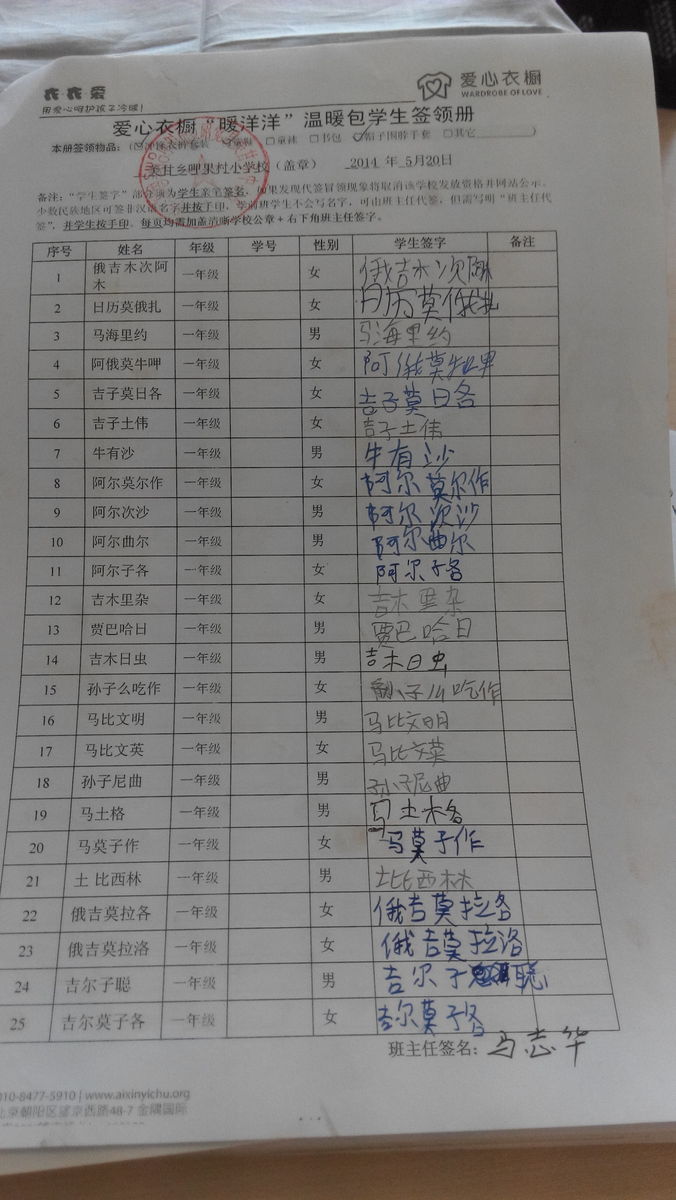 衣衣爱
用爱心呵护孩子冷暖!
爱心衣橱
WARDROBE OF LOVE
爱心衣橱“暖洋洋”温暖包学生签领册
本册签领物品:(☑ 套装 □童袜 □书包 ☑帽子围脖手套 □其它
美甘乡呷果村小学校(盖章) 2014 年 5月20日
备注:“学生签字”部分须为学生亲笔签名,如果发现代签冒领现象将取消该学校发放资格并网站公示。
少数民族地区可签非汉语名字并按手印,学前班学生不会写名字,可由班主任代签,但需写明“班主任代
签”,并学生按手印。每页均需加盖清晰学校公章+右下角班主任签字。
序号 姓名 年级 学号 性别 学生签字 备注
1 俄吉木次阿木 一年级 女 俄吉木次阿木
2 日历莫俄扎 一年级 女 日历莫俄扎
3 马海里约 一年级 男 马海里约
4 阿俄莫牛呷 一年级 女 阿俄莫牛呷
5 吉子莫日各 一年级 女 吉子莫日各
6 吉子土伟 一年级 女 吉子土伟
7 牛有沙 一年级 男 牛有沙
8 阿尔莫尔作 一年级 女 阿尔莫尔作
9 阿尔次沙 一年级 男 阿尔次沙
10 阿尔曲尔 一年级 男 阿尔曲尔
11 阿尔子各 一年级 女 阿尔子各
12 吉木里杂 一年级 女 吉木里杂
13 贾巴哈日 一年级 男 贾巴哈日
14 吉木日虫 一年级 男 吉木日虫
15 孙子么吃作 一年级 女 孙子么吃作
16 马比文明 一年级 男 马比文明
17 马比文英 一年级 女 马比文英
18 孙子尼曲 一年级 男 孙子尼曲
19 马土格 一年级 男 马土格
20 马莫子作 一年级 女 马莫子作
21 土 比西林 一年级 男 土比西林
22 俄吉莫拉各 一年级 女 俄吉莫拉各
23 俄吉莫拉洛 一年级 女 俄吉莫拉洛
24 吉尔子聪 一年级 男 吉尔子聪
25 吉尔莫子各 一年级 女 吉尔莫子各
班主任签名: 马志华
010-8477-5910 | www.aixinyichu.org
北京朝阳区望京西路48-7 金隅国际